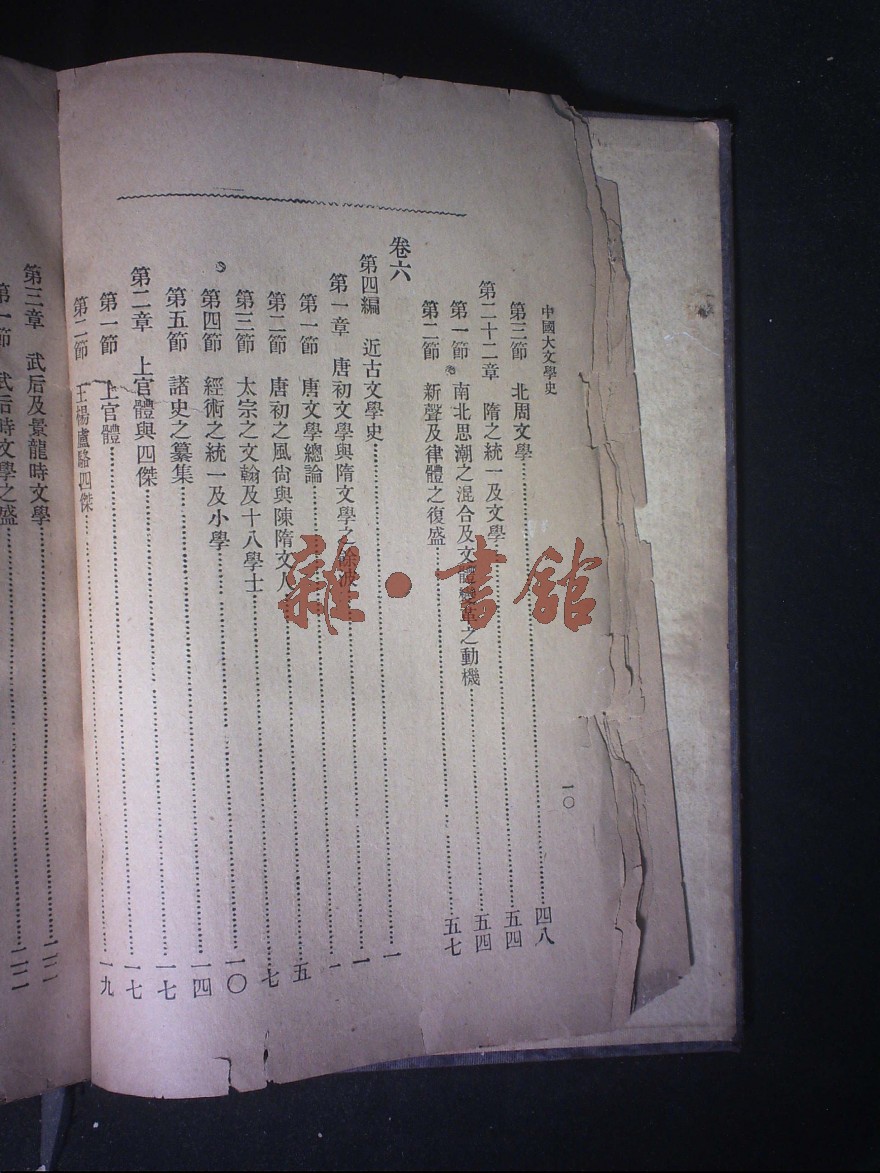 中國大文學史 一〇
第三節 北周文學 四八
第二十二章 隋之統一及文學 五四
第一節 南北思潮之混合及文體變革之動機 五四
第二節 新聲及律體之復盛 五七
卷六
第四編 近古文學史 一
第一章 唐初文學與隋文學之餘波 一
第一節 唐文學總論 一
第二節 唐初之風尙與陳隋文人 五
第三節 太宗之文翰及十八學士 七
第四節 經術之統一及小學 一〇
第五節 諸史之纂集 一四
第二章 上官體與四傑 一七
第一節 上官體 一七
第二節 王楊盧駱四傑 一九
第三章 武后及景龍時文學 二二
第一節 武后時文學之盛 二二
雜·書館